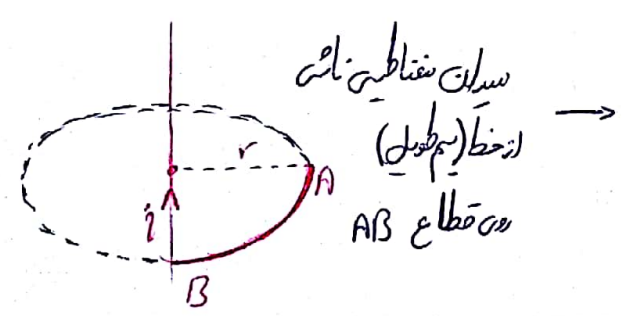 میدان مغناطیسی ناشی
از خط (سیم طویل) →
روی قطاع AB
r
A
i
B